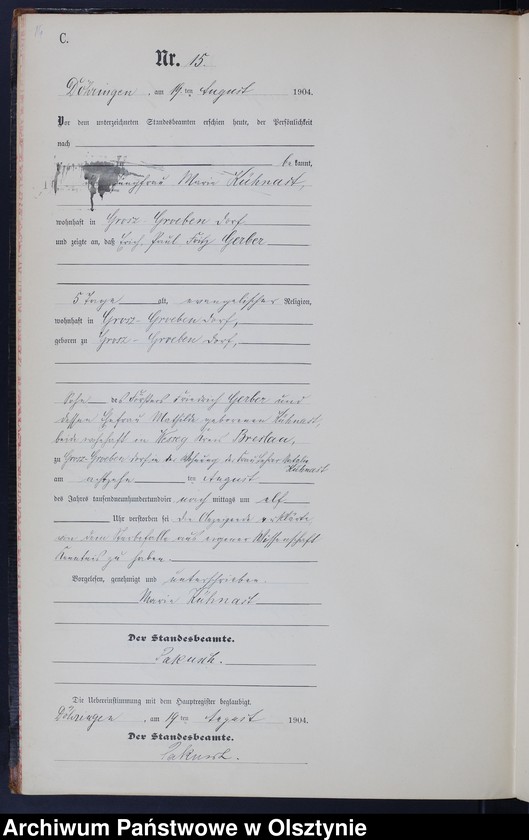 C.
Nr. 15.
Döhringen, am 19ten August 1904.
Vor dem unterzeichneten Standesbeamten erschien heute, der Persönlichkeit
nach
bekannt,
Jungfrau Marie Kühnast,
wohnhaft in Gross-Groeben Dorf
und zeigte an, daß Erich Paul Fritz Gerber
5 Tage alt, evangelischer Religion,
wohnhaft in Gross-Groeben Dorf,
geboren zu Gross-Groeben Dorf,
Sohn des Försters Friedrich Gerber und
dessen Ehefrau Mathilde geborenen Kühnast,
beide wohnhaft in Kreis Breslau,
zu Gross-Groeben Dorf in der Wohnung der Frau Kühnast
am achtzehn ten August
des Jahres tausendneunhundertundvier nachmittags um elf
Uhr verstorben sei. Die Anzeigende erklärte,
von dem Sterbefalle aus eigener Wissenschaft
Kenntnis zu haben.
Vorgelesen, genehmigt und unterschrieben.
Marie Kühnast
Der Standesbeamte.
Pakusch.
Die Uebereinstimmung mit dem Hauptregister beglaubigt.
Döhringen, am 19ten August 1904.
Der Standesbeamte.
Pakusch.
Archiwum Państwowe w Olsztynie